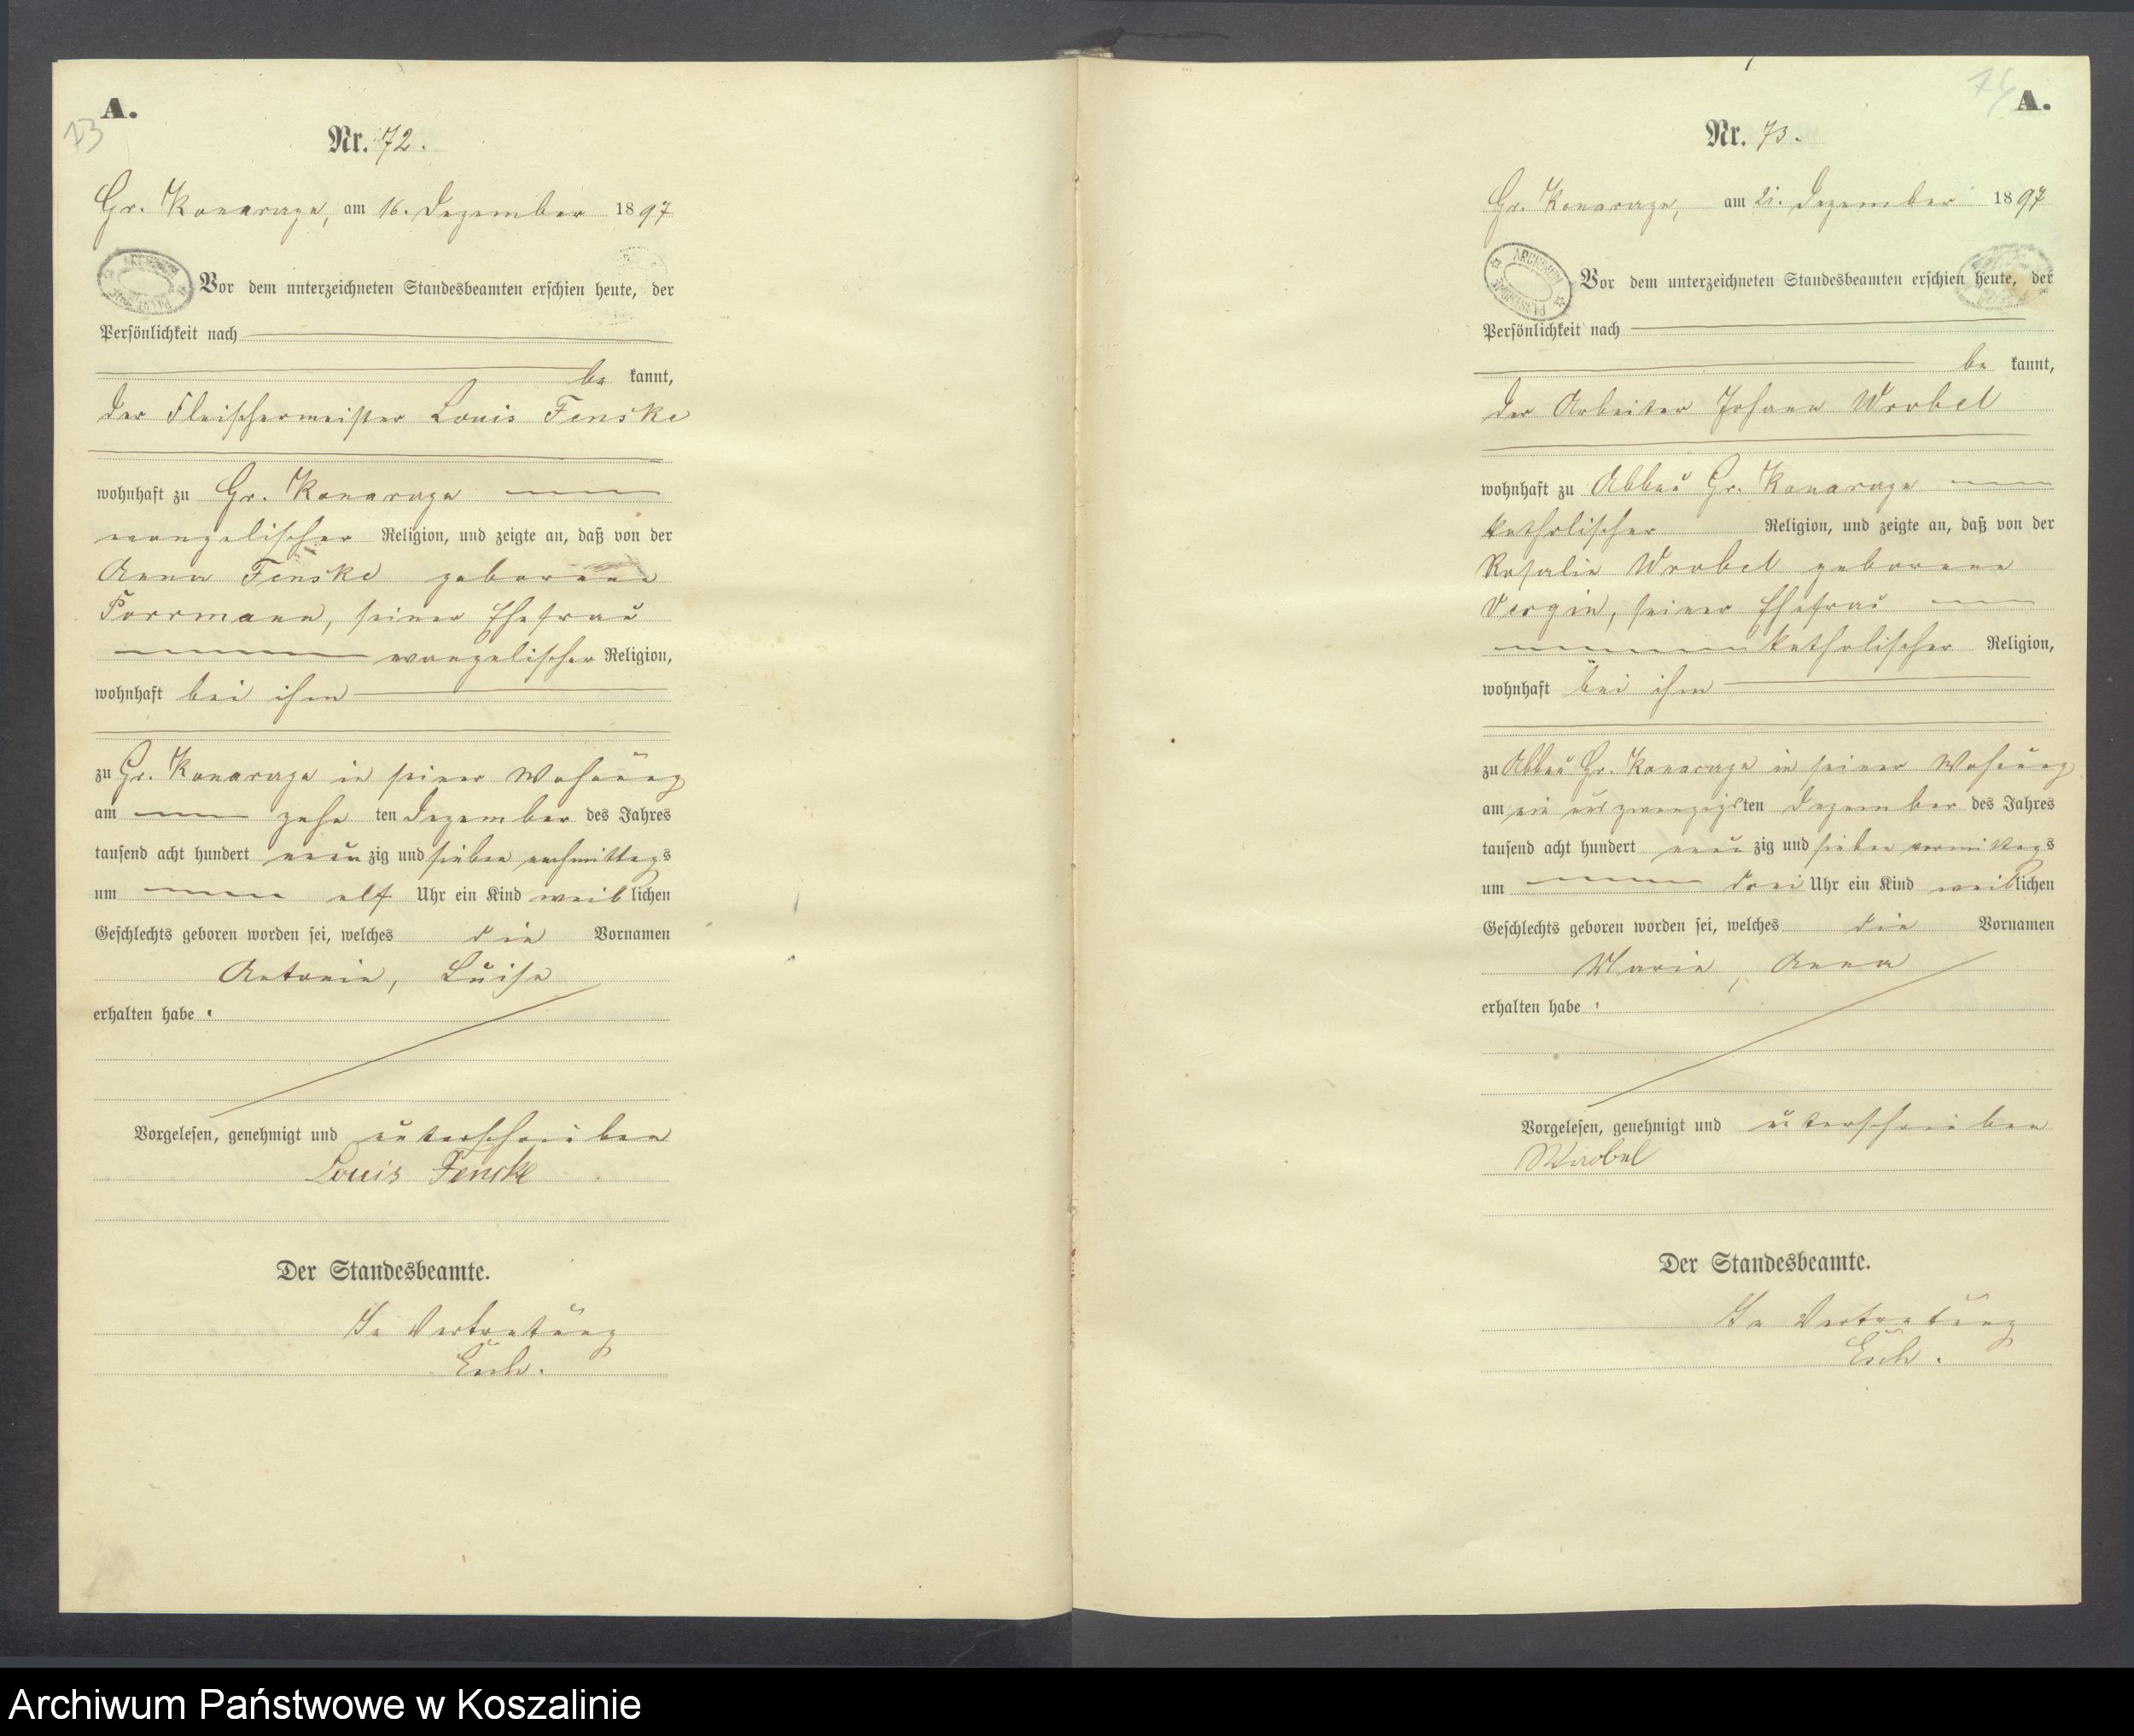 A.
73
Nr. 72.
Gr. Konarzyn, am 16. Dezember 1897
Vor dem unterzeichneten Standesbeamten erschien heute, der
Persönlichkeit nach
be kannt,
der Fleischermeister Louis Fenske
wohnhaft zu Gr. Konarzyn
evangelischer Religion, und zeigte an, daß von der
Anna Fenske geborene
Porrmann, seiner Ehefrau
evangelischer Religion,
wohnhaft bei ihm
zu Gr. Konarzyn in seiner Wohnung
am zehn ten Dezember des Jahres
tausend acht hundert neun zig und sieben nachmittags
um elf Uhr ein Kind weib lichen
Geschlechts geboren worden sei, welches die Vornamen
Antonie, Luise
erhalten habe.
Vorgelesen, genehmigt und unterschrieben
Louis Fenske
Der Standesbeamte.
In Vertretung
A.
74
Nr. 73.
Gr. Konarzyn, am 21. Dezember 1897
ARCHIWUM
Vor dem unterzeichneten Standesbeamten erschien heute, der
Persönlichkeit nach
be kannt,
der Arbeiter Johann Wrobel
wohnhaft zu Abbau Gr. Konarzyn
katholischer Religion, und zeigte an, daß von der
Rosalie Wrobel geborene
Vergin, seiner Ehefrau
katholischer Religion,
wohnhaft bei ihm
zu Abbau Gr. Konarzyn in seiner Wohnung
am ein und zwanzigsten Dezember des Jahres
tausend acht hundert neun zig und sieben vormittags
um drei Uhr ein Kind weiblichen
Geschlechts geboren worden sei, welches die Vornamen
Marie, Anna
erhalten habe.
Vorgelesen, genehmigt und unterschrieben
Wrobel
Der Standesbeamte.
In Vertretung
Archiwum Państwowe w Koszalinie